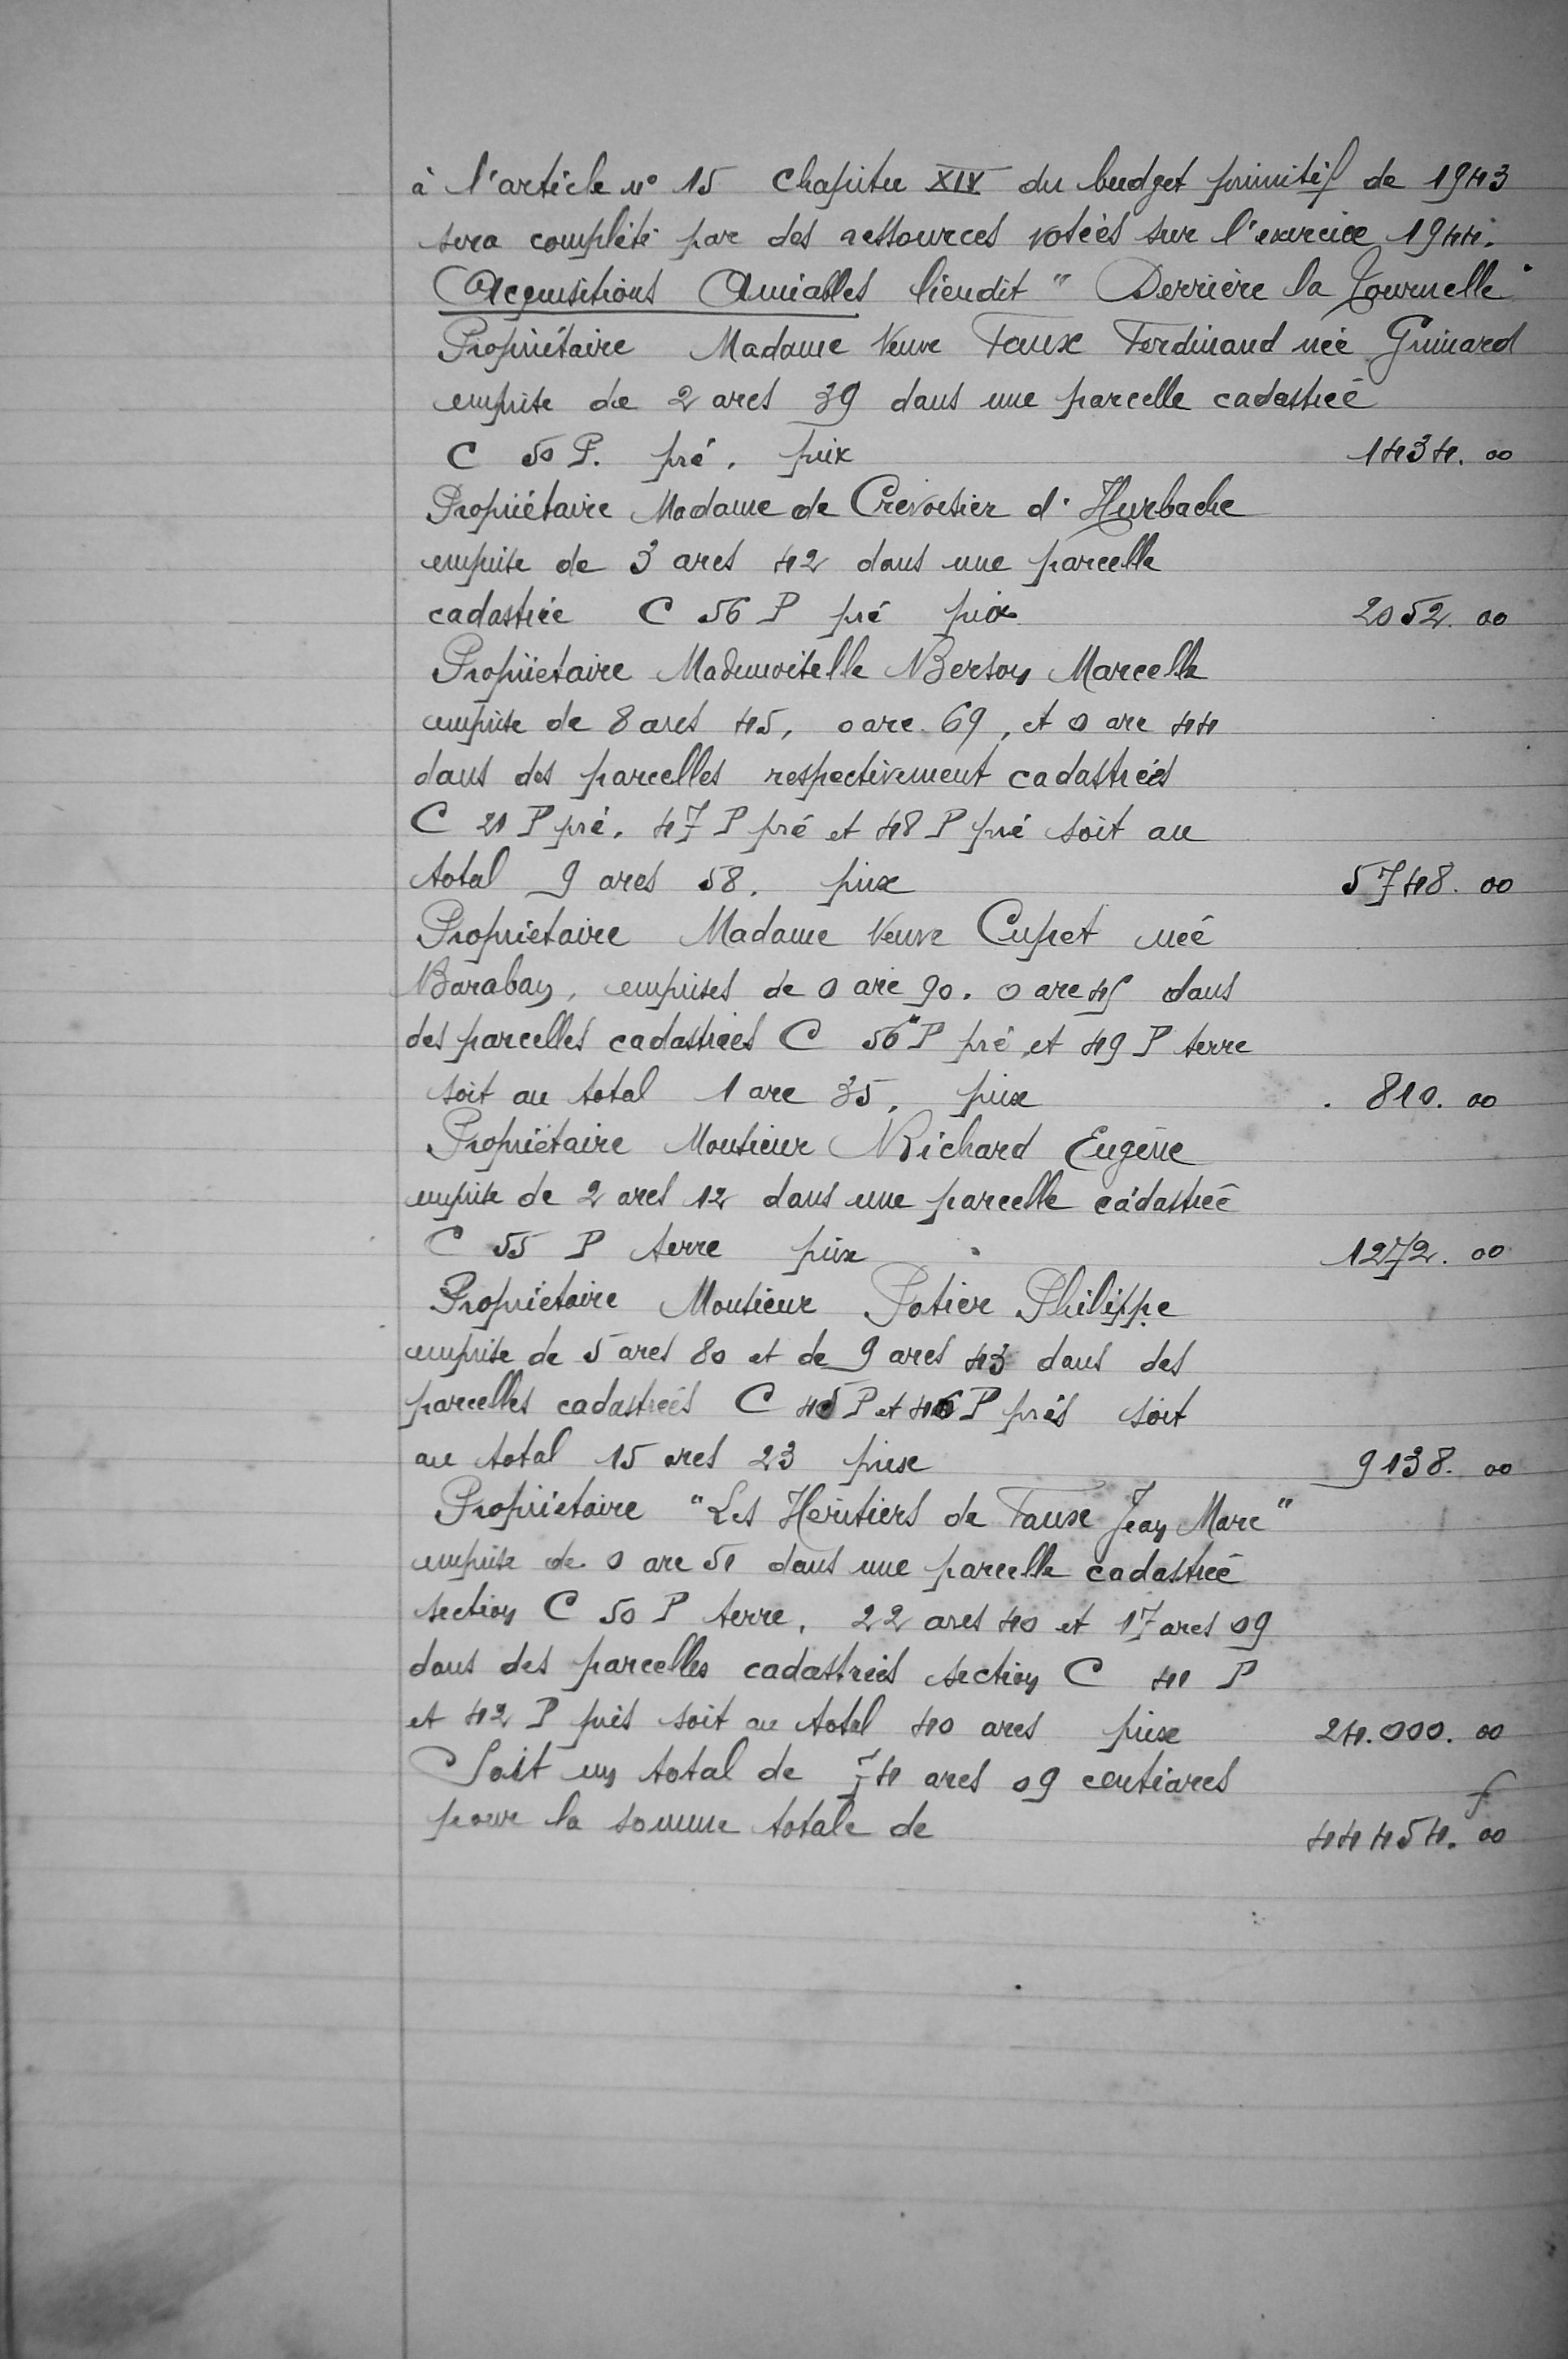 à l'article n° 15 Chapitre XIV du budget primitif de 1943
sera complété par des ressources votées sur l'exercice 1944.
Acquisitions Amiables lieudit " Derrière la Tournelle"
Propriétaire Madame Veuve Faux Ferdinand née Grimard
emprise de 2 ares 39 dans une parcelle cadastrée
C 50 P. pré. prix 1434.00
Propriétaire Madame de Crevoisier d'Hurbache
emprise de 3 ares 42 dans une parcelle
cadastrée C 56 P pré prix 2052.00
Propriétaire Mademoiselle Berson Marcelle
emprise de 8 ares 45, 0 are 69, et 0 are 44
dans des parcelles respectivement cadastrées
C 21 P pré. 47 P pré et 48 P pré soit au
total 9 ares 58. prix 5748.00
Propriétaire Madame Veuve Cupet née
Baraban, emprises de 0 are 90. 0 are 45 dans
des parcelles cadastrées C 56" P pré et 49 P terre
soit au total 1 are 35, prix 810.00
Propriétaire Monsieur Richard Eugène
emprise de 2 ares 12 dans une parcelle cadastrée
C 55 P terre prix 1272.00
Propriétaire Monsieur Potier Philippe
emprise de 5 ares 80 et de 9 ares 43 dans des
parcelles cadastrées C 45 P et 46 P prés soit
au total 15 ares 23 prix 9138.00
Propriétaire "Les Héritiers de Faux Jean Marc"
emprise de 0 are 51 dans une parcelle cadastrée
section C 50 P terre, 22 ares 40 et 17 ares 09
dans des parcelles cadastrées section C 41 P
et 42 P prés soit au total 40 ares prix 24.000.00
Soit un total de 74 ares 09 centiares
pour la somme totale de 44454.f00